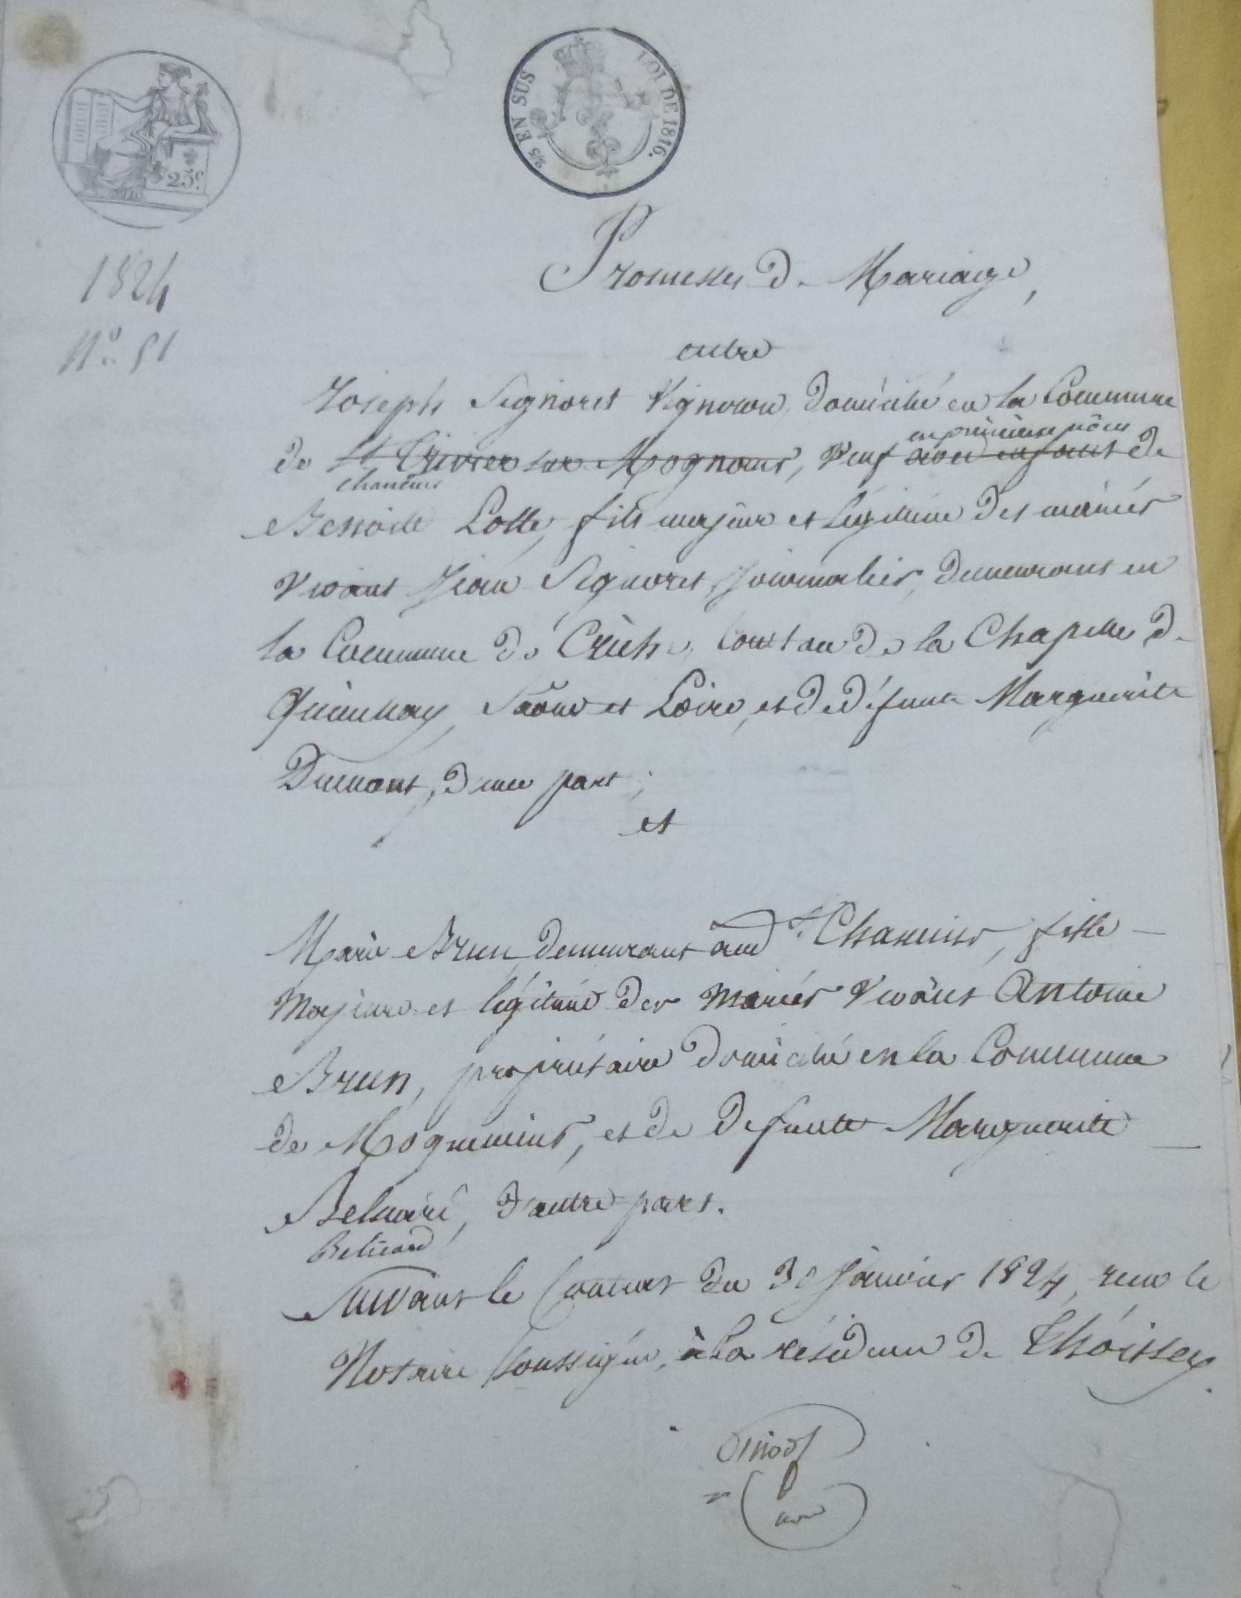 25c.
2/5 EN SUS LOI DE 1816.
1824
N.º 51
Promesses de Mariage,
entre
Joseph Signoret Vigneron, domicilié en la Commune
en premières nôces
de St Trivier sur Mognens, veuf avec enfant de
Chaneins
Benoite Lotte, fils majeur et légitime des mariés
vivant Jean Signoret, Journalier, demeurant en
la Commune de Crêche, Canton de la Chapelle de
Guinchay, Saône et Loire, et de défunte Marguerite
Dumont, d'une part;
et
Marie Brun demeurant aud. Chaneins, fille
Majeure et légitime des mariés vivant Antoine
Brun, propriétaire domicilié en la Commune
de Mogneneins, et de défunte Marguerite
d'autre part.
Suivant le Contrat du 30 Janvier 1824, reçu le
Notaire soussigné, à la résidence de Thoissey.